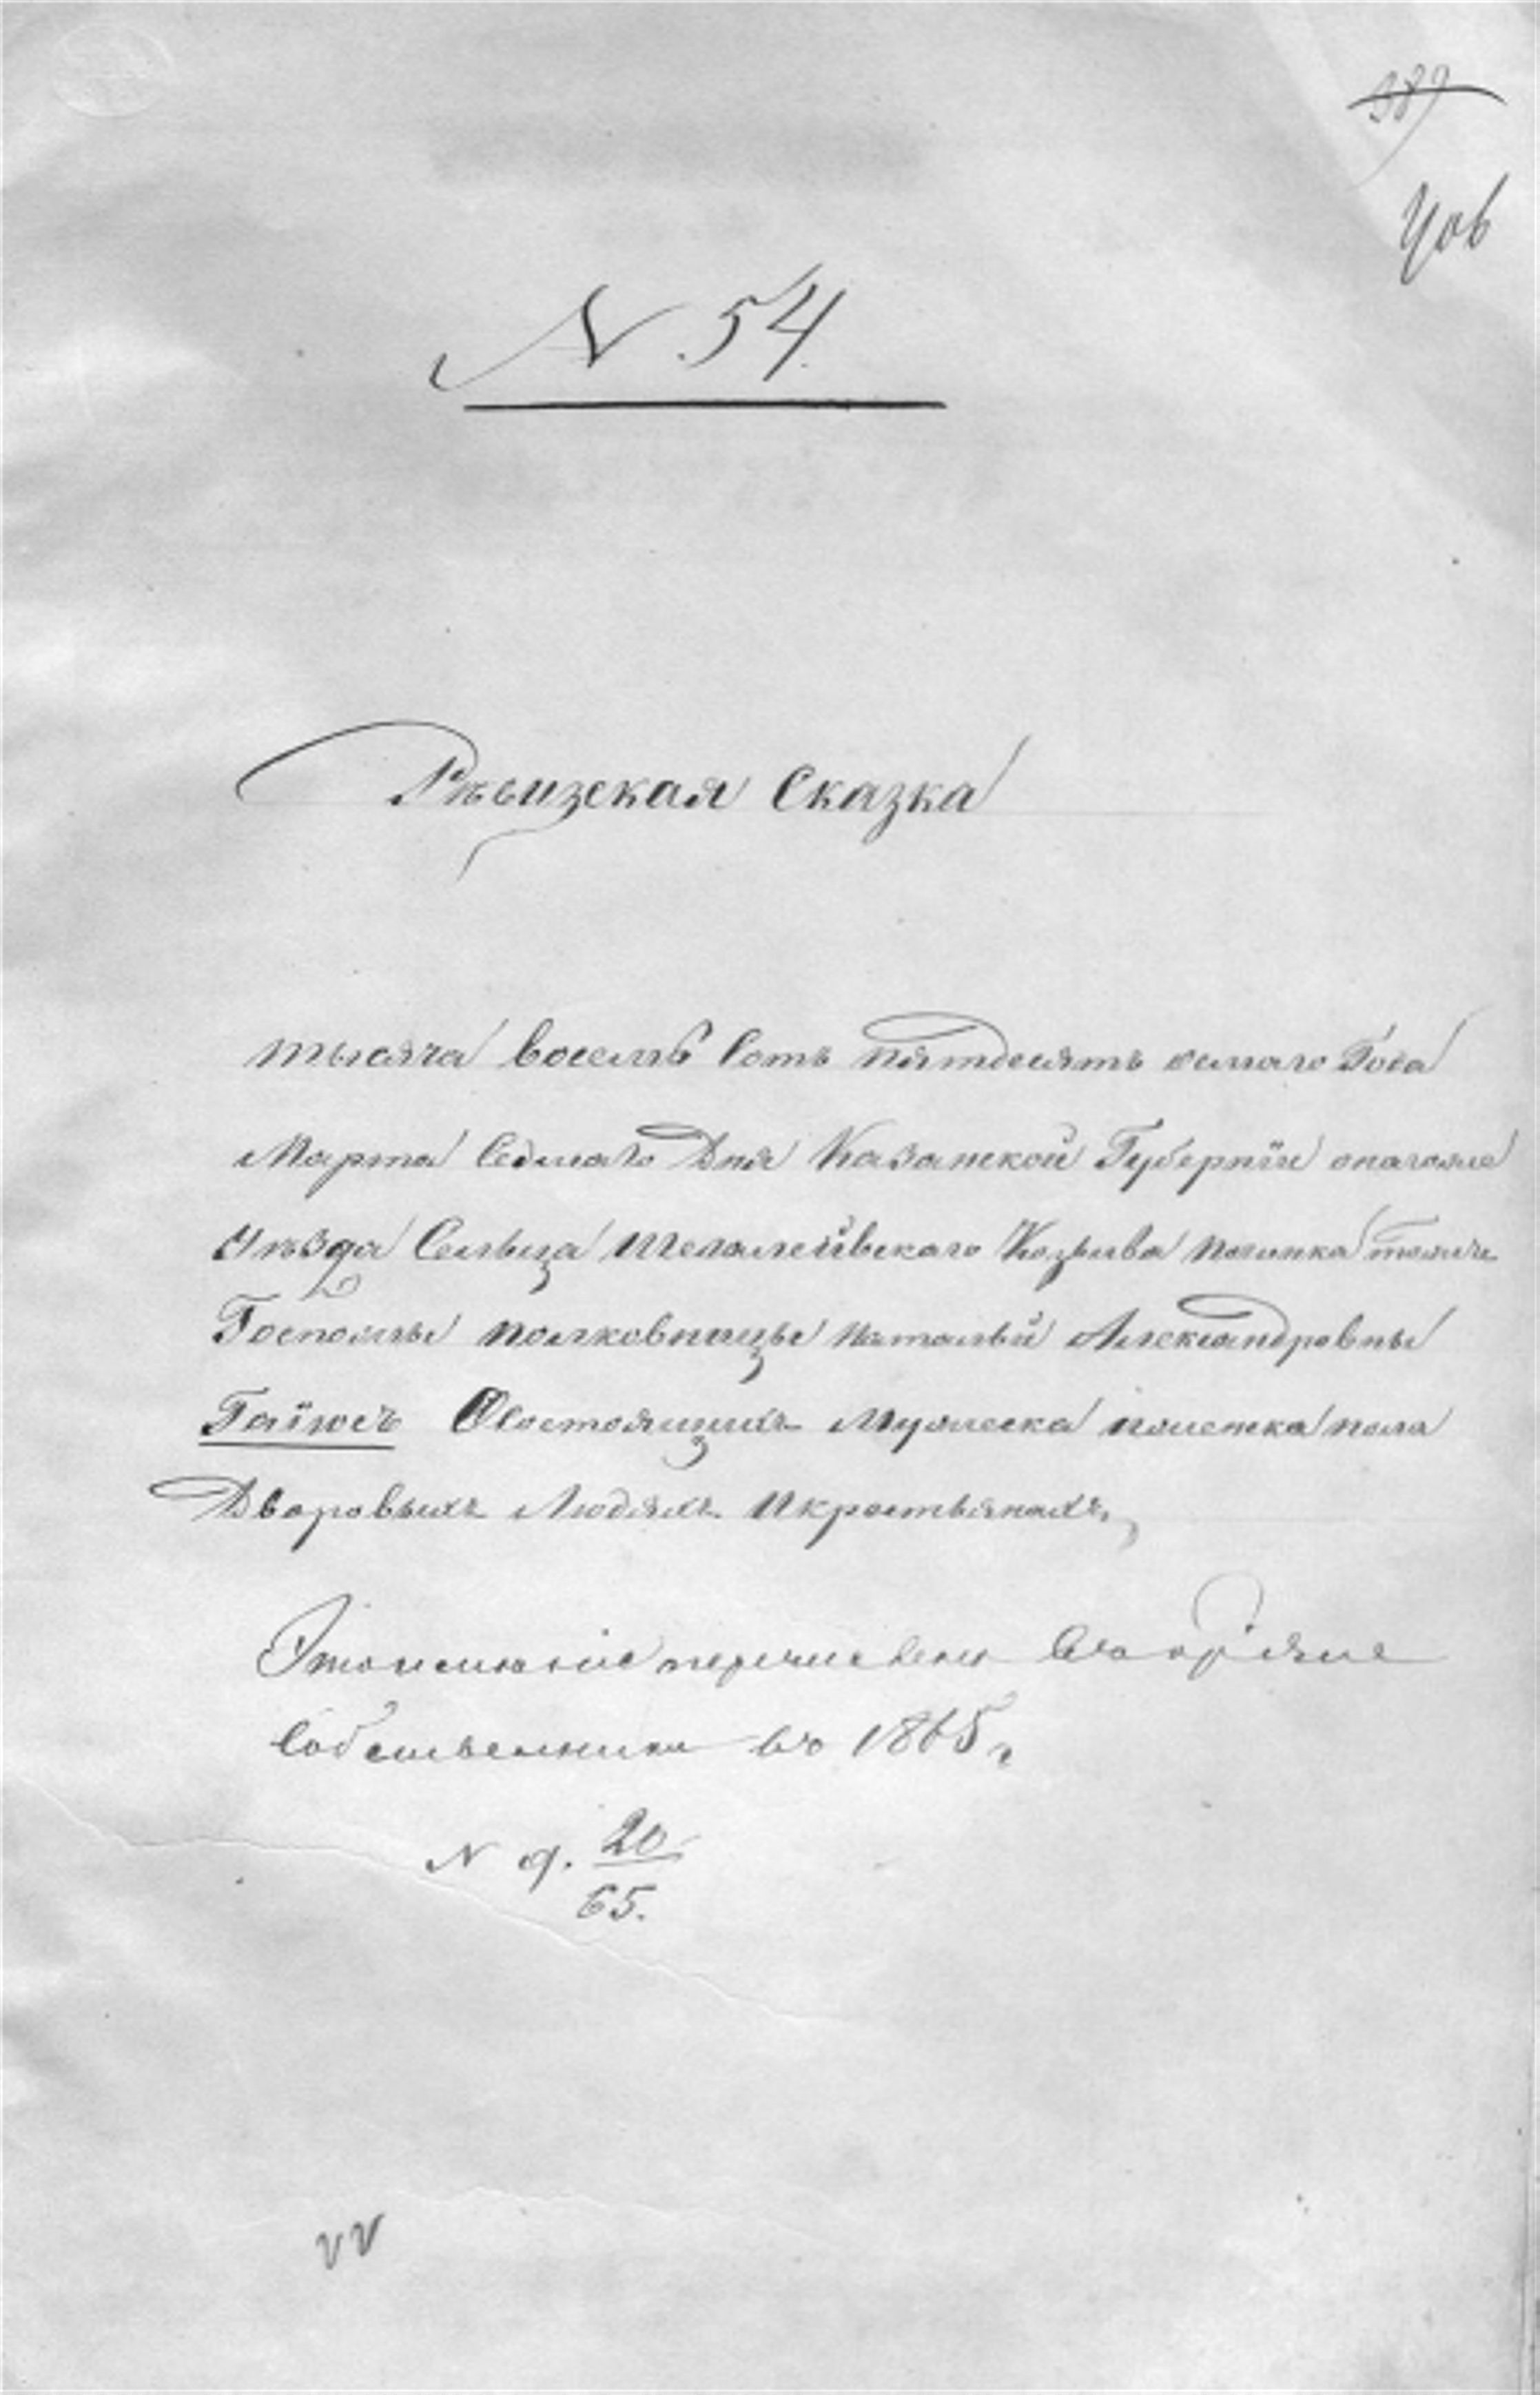 389
406
N. 54.
Рѣвизская Сказка
тысяча восемь сотъ пятдесятъ осмаго Года
Марта Седмаго Дня Казанской Губерніи
Уѣзда Сельца Шегалеевскаго Козьива починка тожъ
Госпожы полковницы Натальи Александровны
Гаіюсъ Осостоящихъ Мужеска иженска пола
Дворовыхъ Людяхъ Икрестьянахъ,
перечислены
Собственники въ 1865 г
N д. 20/65.